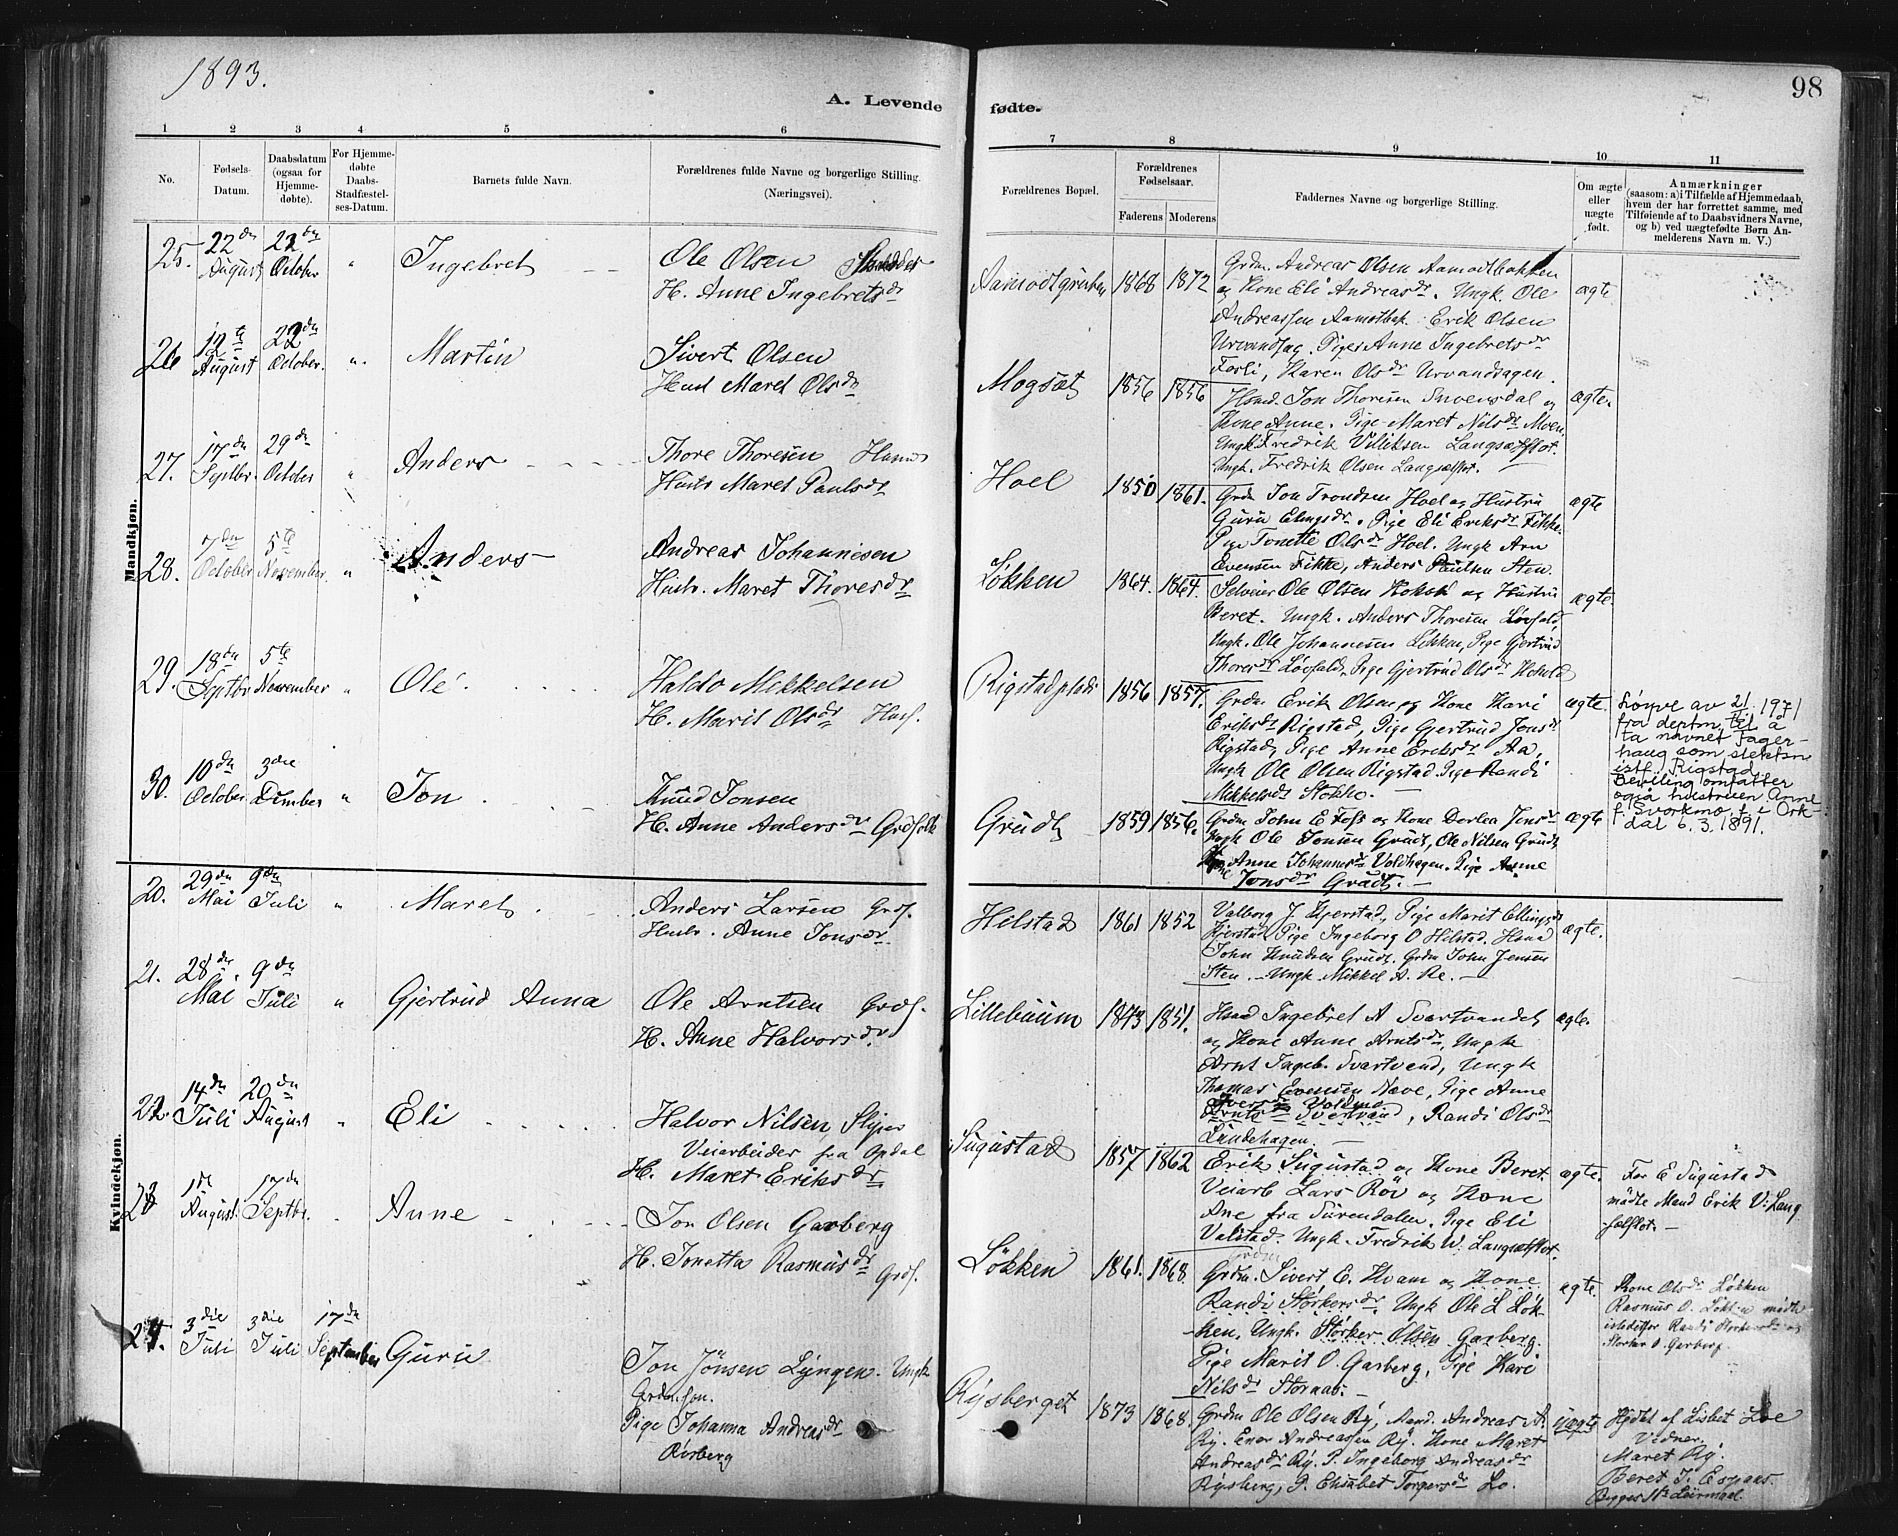 1893.
98
A. Levende fødte.
1 2 3 4 5 6 7 8 9 10 11
No.
Fødsels-Datum.
Daabsdatum (ogsaa for Hjemme-døbte).
For Hjemme-døbte Daabs-Stadfæstel-ses-Datum.
Barnets fulde Navn.
Forældrenes fulde Navne og borgerlige Stilling. (Næringsvei).
Forældrenes Bopæl.
Forældrenes Fødselsaar.
Faderens Moderens
Faddernes Navne og borgerlige Stilling.
Om ægte eller uægte født.
Anmærkninger (saasom: a) i Tilfælde af Hjemmedaab, hvem der har forrettet samme, med Tilføiende af to Daabsvidners Navne, og b) ved uægtefødte Børn An-melderens Navn m. V.)
Mandkjøn.
25. 22dn August 22dn October " Ingebret
Ole Olsen
H. Anne Ingebretsdr
1868 1872
Grdm. Andreas Olsen Aamodtbakken
og Kone Eli Andreasdr. Ungk. Ole
Andreassen Aamotbak. Erik Olsen
Urvandhag. Piger Anne Ingebretsdr
Forli, Karen Olsdr Urvandhagen.
ægte
26 12te August 22dn October. ". Martin
Sivert Olsen
Hust Maret Olsdr
Mogset 1856 1856
Husmd. Jon Thoresen
Kone Anne. Pige Maret Nilsdr Moen,
Ungk. Fredrik Langsætflot.
Ungk. Fredrik Olsen Langsætflot.
ægte.
27. 17dn Septbr. 29dn October " Anders
Thore Thoresen Husmd
Hustr Maret Paulsdr
Hoel 1850 1861.
Grdm Jon Trondsen Hoel og Hustru
Guru Elingsdr. Pige Eli Eriksdr Fikke.
Pige Tonette Olsdr Hoel. Ungk Arn
Evensen Fikke, Anders Paulsen Sten.
ægte
28. 7dn October 5te November. " Anders
Andreas Johannesen
Hustr. Maret Thoresdr
Løkken 1864. 1864.
Selveier Ole Olsen og Hustru
Beret. Ungk. Anders Thoresen Løvfald,
Ungk. Ole Johannesen Løkken, Pige Gjertrud
Thoresdr Løvfald, Pige Gjertrud Olsdr
ægte.
29. 18dn Septbr 5te November " Ole.
Haldo Mikkelsen
H. Marit Olsdr Husf.
Rigstadplads 1856 1857.
Grdm Erik Olsen og Kone Kari
Eriksdr Rigstad, Pige Gjertrud Jonsdr
Rigstad, Pige Anne Eriksdr Aa,
Ungk Ole Olsen Rigstad. Pige Randi
Mikkelsdr Stokke.
ægte.
av 21. 1971
fra deptm. til å
ta navnet Fager-
haug som slektsn
istf. Rigstad
Bevilling omfatter
også hustruen Anne
f. Svorkmo, f. i Ork-
dal 6.3.1891.
30. 10dn October 3die Dcmber " Jon
Knud Jonsen
H. Anne Andersdr Grdfolk
Grudt 1859 1856.
Grdm John E Foss og Kone Dorlea Jensdr
Ungk Ole Jonsen Grudt, Ole Nilsen Grudt
Anne Johannesdr Voldhagen. Pige Anne
Jonsdr Grudt.
ægte
Kvindekjøn.
20. 29dn Mai 9dn Juli " Maret
Anders Larsen Grdf.
Hustr. Anne Jonsdr.
Hilstad 1861 1852
Valborg J. Hjerstad, Pige Marit Ellingsdr
Hjerstad Pige Ingeborg O Hilstad. Husmd
John Knudsen Grudt. Grdm John Jensen
Sten. Ungk Mikkel A. Re.
ægte.
21. 28de Mai 9dn Juli " Gjertrud Anna
Ole Arntsen Grdf.
H. Anne Halvorsdr.
Lillebuum 1843 1851.
Husmd Ingebret A Svartvandet
og Kone Anne Arntsdr, Ungk
Arnt Ingeb. Svartvand, Ungk
Thomas Evensen Næve, Pige Anne
Arntsdr Svartvand, Randi Olsdr
Lindehagen.
ægte.
22. 14dn Juli 20dn August " Eli
Halvor Nilsen,
Veiarbeider fra Opdal
H. Maret Eriksdr
Sugustad 1857 1862
Erik Sugustad og Kone Beret.
Veiarb Lars Röv og Kone
Ane fra Surendalen. Pige Eli
Valstad. Ungk. Fredrik W. Langsætflot.
ægte.
For E Sugustad
mødte Mand Erik V. Lang
sætflot.
23 1de August 17dn Septbr. Anne
Jon Olsen Garberg
H. Jonetta Rasmusdr Grdf.
Løkken 1861. 1868.
Grdm. Sivert E. Hvam og Kone
Randi Størkersdr. Ungk Ole L Løk-
ken. Ungk. Størker Olsen Garberg.
Pige Marit O. Garberg, Pige Kari
Nilsdr Stornas.
ægte.
Kone Olsdr Løkken
Rasmus O. Løkken mødte
istedetfor Randi Størkersdr og
Størker O. Garberg
24. 3die Juli 3die Juli 17dn September Guru
Jon Jönsen Lyngen. Ungk
Grdmson.
Pige Johanna Andreasdr
Rösberg
Rysberget 1873 1868.
Grdm Ole Olsen Ry, Mand. Andreas A.
Ry. Enor Andreassen Ry. Kone Maret
Andreasdr Ry. P. Ingeborg Andreasdr
Rysberg, P. Elisabet Torgersdr Lo.
uægte
Hjdbt af Lisbet Loe
Vidner.
Maret Ry.
Beret J. Espaas.